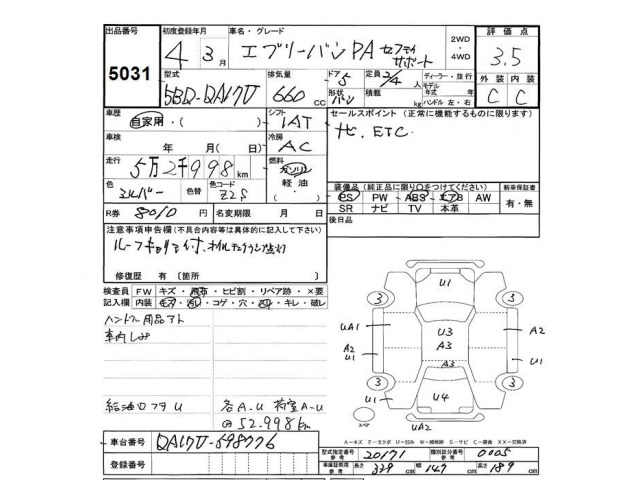 出品番号 5031
初度登録年月 4年 3月
車名・グレード エブリーバン PA セフティサポート
2WD・4WD
評価点 3.5
型式 5BD-DA17V
排気量 660 cc
ドア 5
形状 バン
定員 2/4 人
積載 kg
ディーラー・並行
モデル年式 年
ハンドル 左・右
外装 C 内装 C
車歴 自家用・( )
シフト IAT
セールスポイント (正常に機能するものに限ります)
ナビ. ETC
車検 年 月(日)
冷房 AC
走行 5万2千998 km
燃料 ガソリン 軽油・
色 シルバー 色替 色コード Z2S
装備品 (純正品に限り○をつけてください)
PS PW ABS エアB AW
SR ナビ TV 本革
新車保証書 有・無
R券 8010 円 名変期限 月 日
後日品
注意事項申告欄 (不具合内容等は具体的に記入して下さい)
ルーフキャリア付.
修復歴 有 [箇所 ]
検査員 FW キズ・ ・ヒビ割・リペア跡・×要
記入欄 内装 キズ・汚レ・コゲ・穴・スレ・キレ・破レ
ハンドル用品アト
車内しみ
給油口フタU
各A.U 荷室A-U
@52.998km
U1
3 3
UA1 U3 A2
A3
A2 U1 U1
A3
3 3
U1 U4
スペア UA2
A－キズ E－エクボ U－凹み W－補修跡 S－サビ C－腐食 XX－交換済
車台番号 DA17V-698776
登録番号
型式指定番号 参考 20171 類別区分番号 参考 0005
車庫証明用 参考 長さ 339 cm 幅 147 cm 高さ 189 cm